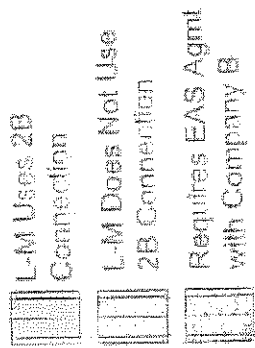 L-M Uses 2B
Connection
L-M Does Not Use
2B Connention
Requires EAS Agmt
with Company B